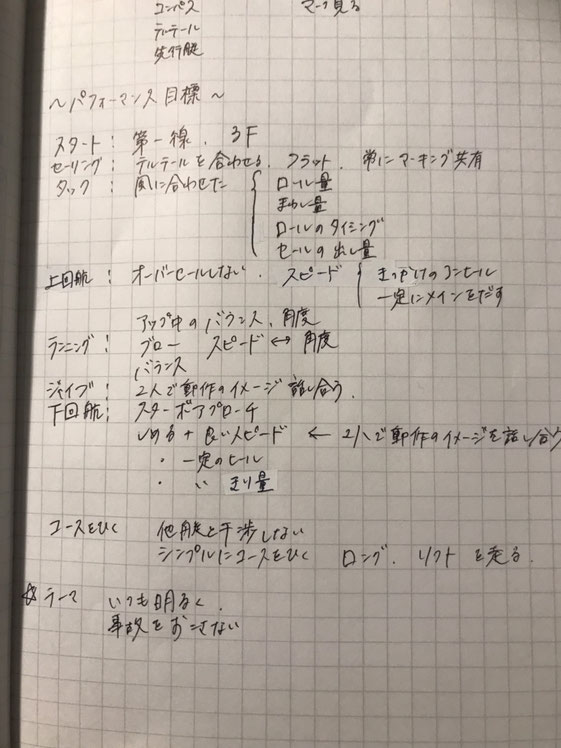 コンパス マーク見る
テルテール
先行艇
~パフォーマンス目標~
スタート: 第一線. 3F
セーリング: テルテールを合わせる. フラット. 常にマーキング共有
タック: 風に合わせた ロール量
まわし量
ロールのタイミング
セールの出し量
上回航: オーバーセールしない. スピード きっかけのヨンヒール
一定にメインをだす
アップ中のバランス、角度
ランニング: ブロー スピード ↔ 角度
バランス
ジャイブ: 2人で動作のイメージ話し合う.
下回航: スターボアプローチ
しめる + 良いスピード ← 2人で動作のイメージを話し合う
・ 一定のヒール
・ 〃 きり量
コースをひく 他艇と干渉しない
シンプルにコースをひく ロング. リフトを走る.
☆テーマ いつも明るく.
事故をおこさない